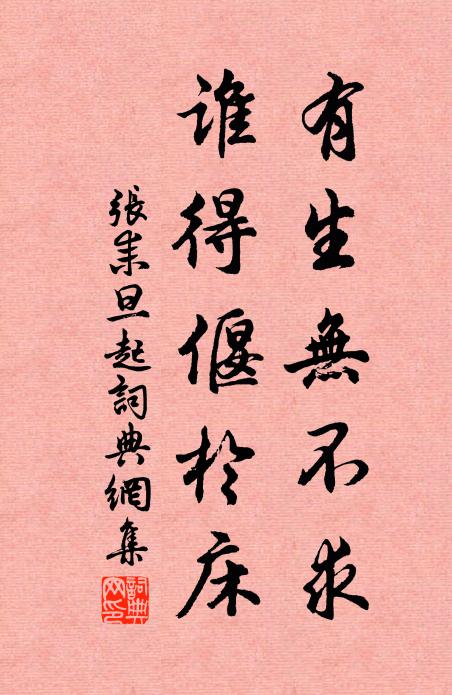 有生無不求
誰得偃於床
張耒旦起詞典網集
詞典網印